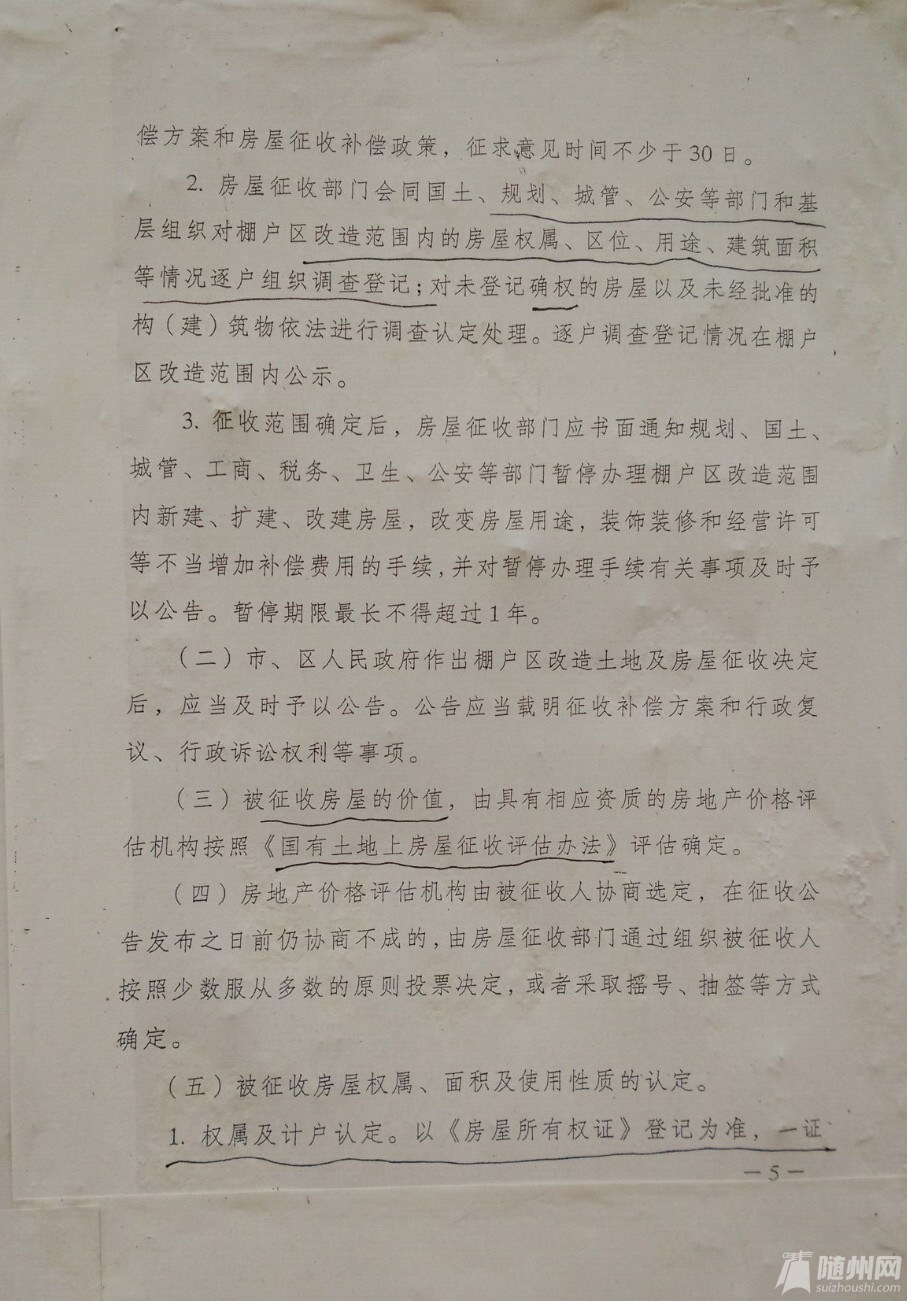 偿方案和房屋征收补偿政策，征求意见时间不少于30日。
2. 房屋征收部门会同国土、规划、城管、公安等部门和基
层组织对棚户区改造范围内的房屋权属、区位、用途、建筑面积
等情况逐户组织调查登记；对未登记确权的房屋以及未经批准的
构（建）筑物依法进行调查认定处理。逐户调查登记情况在棚户
区改造范围内公示。
3. 征收范围确定后，房屋征收部门应书面通知规划、国土、
城管、工商、税务、卫生、公安等部门暂停办理棚户区改造范围
内新建、扩建、改建房屋，改变房屋用途，装饰装修和经营许可
等不当增加补偿费用的手续，并对暂停办理手续有关事项及时予
以公告。暂停期限最长不得超过1年。
（二）市、区人民政府作出棚户区改造土地及房屋征收决定
后，应当及时予以公告。公告应当载明征收补偿方案和行政复
议、行政诉讼权利等事项。
（三）被征收房屋的价值，由具有相应资质的房地产价格评
估机构按照《国有土地上房屋征收评估办法》评估确定。
（四）房地产价格评估机构由被征收人协商选定，在征收公
告发布之日前仍协商不成的，由房屋征收部门通过组织被征收人
按照少数服从多数的原则投票决定，或者采取摇号、抽签等方式
确定。
（五）被征收房屋权属、面积及使用性质的认定。
1. 权属及计户认定。以《房屋所有权证》登记为准，一证
— 5 —
随州网
suizhoushi.com